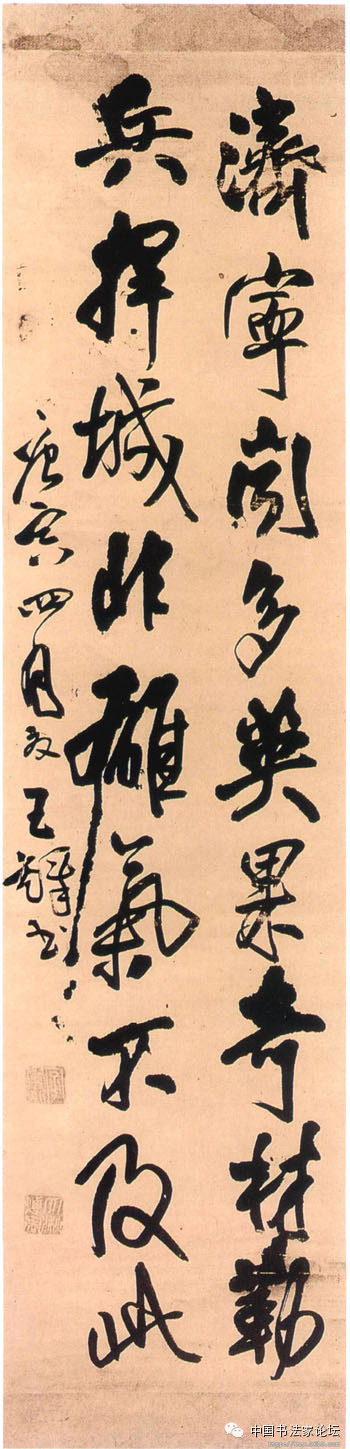 濟寧間多英果奇材勒
兵捍城非雄氣不及此
庚寅四月夜王鐸書
中国书法家论坛